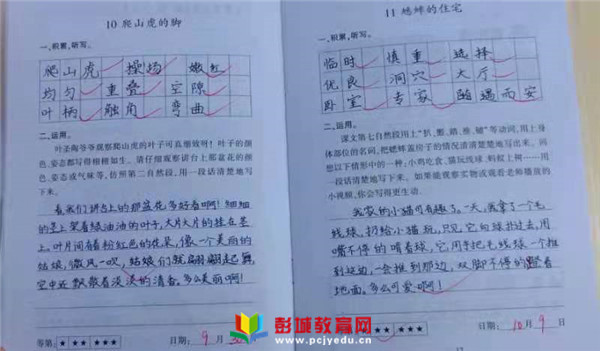 10 爬山虎的脚
一、积累,听写。
爬山虎 操场 嫩红
均匀 重叠 空隙
叶柄 触角 弯曲
二、运用。
叶圣陶爷爷观察爬山虎的叶子可真细致呀!叶子的颜
色、姿态都写得栩栩如生。请仔细观察讲台上那盆花的颜
色、姿态或气味等,仿照第二自然段,用一段话清楚地写
下来。
看我们讲台上的那盆花多好看啊!细细
的茎上架着绿油油的叶子,大片大片的挂在茎
上。叶片间有着粉红色的花朵,像一个美丽的
姑娘,微风一吹,姑娘们就翩翩起舞,
空中还飘散着淡淡的清香。多么美丽啊!
等第:★ ★★ ★★★ 日期: 9 月
11 蟋蟀的住宅
一、积累,听写。
临时 慎重 选择
优良 洞穴 大厅
卧室 专家 随遇而安
二、运用。
课文第七自然段用上“扒、搬、踏、推、铺”等动词,用上身
体部位的名词,把蟋蟀盖房子的情况清清楚楚地写出来。回
想以下情形中的一种:小鸡吃食、猫玩线球、蚂蚁上树……用
一段话清楚地写下来。如果能观察实物或观看老师播放的
小视频,你会写得更生动。
我家的小猫可有趣了。一天,我拿了个毛
线球,扔给小猫玩,只见它向球扑过去,用
嘴不停的啃着球,它用手把毛线球一个推
到这边,一会推到那边,双脚不停的蹬着
地面。多么可爱啊!
★★ ★★★ 日期: 10 月 9 日
彭城教育网
www.pcjyedu.cn